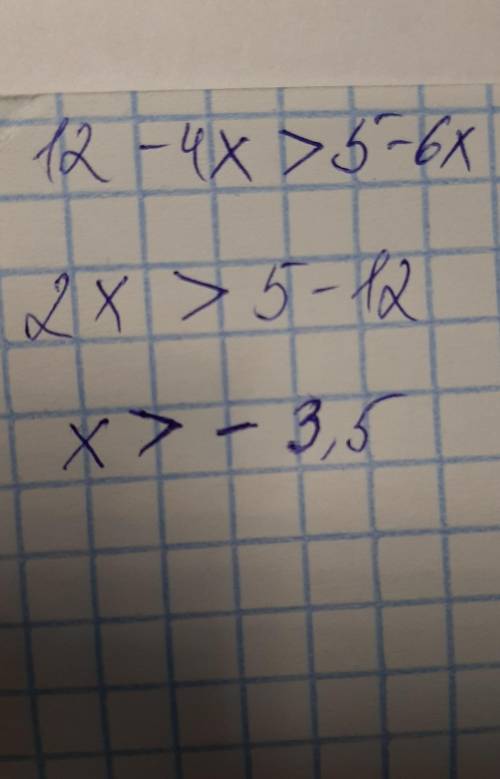 12 - 4x > 5 - 6x
2x > 5 - 12
x > - 3,5